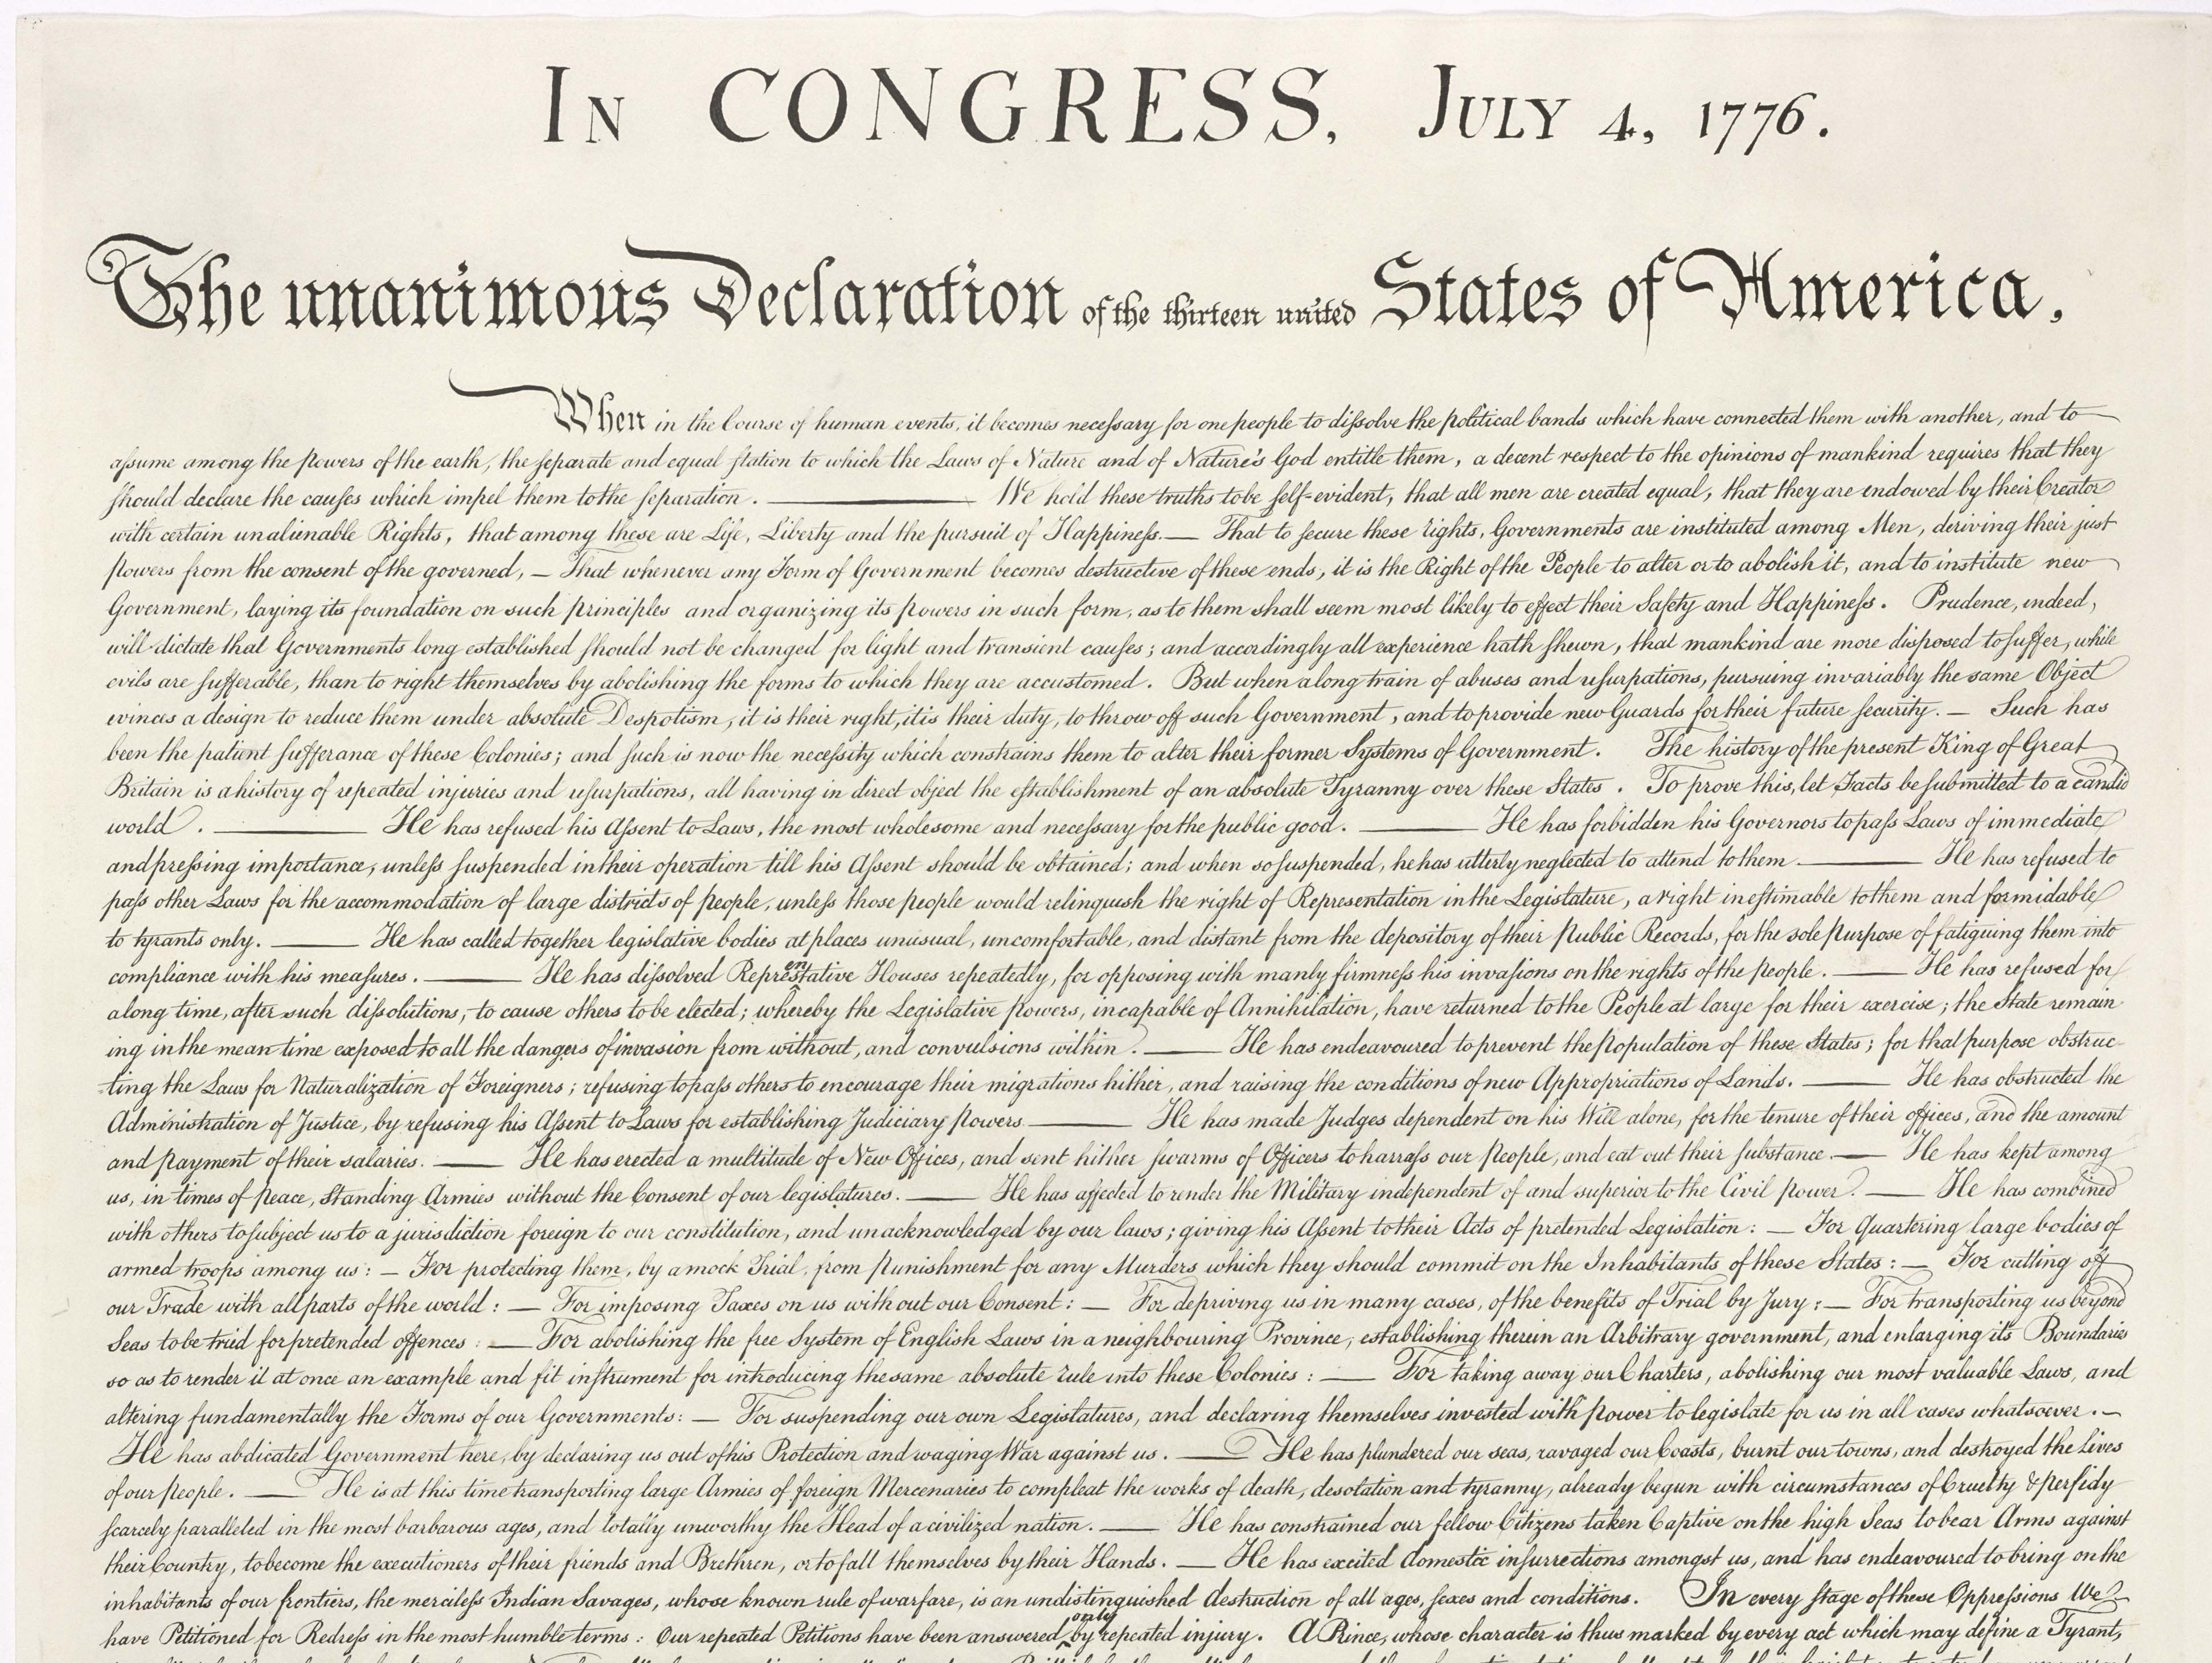 In CONGRESS, July 4, 1776.
The unanimous Declaration of the thirteen united States of America,
When in the Course of human events, it becomes necessary for one people to dissolve the political bands which have connected them with another, and to
assume among the powers of the earth, the separate and equal station to which the Laws of Nature and of Nature's God entitle them, a decent respect to the opinions of mankind requires that they
should declare the causes which impel them to the separation. ——— We hold these truths to be self-evident, that all men are created equal, that they are endowed by their Creator
with certain unalienable Rights, that among these are Life, Liberty and the pursuit of Happiness.— That to secure these rights, Governments are instituted among Men, deriving their just
powers from the consent of the governed, — That whenever any Form of Government becomes destructive of these ends, it is the Right of the People to alter or to abolish it, and to institute new
Government, laying its foundation on such principles and organizing its powers in such form, as to them shall seem most likely to effect their Safety and Happiness. Prudence, indeed,
will dictate that Governments long established should not be changed for light and transient causes; and accordingly all experience hath shewn, that mankind are more disposed to suffer, while
evils are sufferable, than to right themselves by abolishing the forms to which they are accustomed. But when a long train of abuses and usurpations, pursuing invariably the same Object
evinces a design to reduce them under absolute Despotism, it is their right, it is their duty, to throw off such Government, and to provide new Guards for their future security.— Such has
been the patient sufferance of these Colonies; and such is now the necessity which constrains them to alter their former Systems of Government. The history of the present King of Great
Britain is a history of repeated injuries and usurpations, all having in direct object the establishment of an absolute Tyranny over these States. To prove this, let Facts be submitted to a candid
world. ——— He has refused his Assent to Laws, the most wholesome and necessary for the public good. ——— He has forbidden his Governors to pass Laws of immediate
and pressing importance, unless suspended in their operation till his Assent should be obtained; and when so suspended, he has utterly neglected to attend to them. ——— He has refused to
pass other Laws for the accommodation of large districts of people, unless those people would relinquish the right of Representation in the Legislature, a right inestimable to them and formidable
to tyrants only. ——— He has called together legislative bodies at places unusual, uncomfortable, and distant from the depository of their Public Records, for the sole purpose of fatiguing them into
compliance with his measures. ——— He has dissolved Representative Houses repeatedly, for opposing with manly firmness his invasions on the rights of the people. ——— He has refused for
a long time, after such dissolutions, to cause others to be elected; whereby the Legislative powers, incapable of Annihilation, have returned to the People at large for their exercise; the State remain
ing in the mean time exposed to all the dangers of invasion from without, and convulsions within. ——— He has endeavoured to prevent the population of these States; for that purpose obstruc-
ting the Laws for Naturalization of Foreigners; refusing to pass others to encourage their migrations hither, and raising the conditions of new Appropriations of Lands. ——— He has obstructed the
Administration of Justice, by refusing his Assent to Laws for establishing Judiciary powers. ——— He has made Judges dependent on his Will alone, for the tenure of their offices, and the amount
and payment of their salaries. ——— He has erected a multitude of New Offices, and sent hither swarms of Officers to harrass our people, and eat out their substance. — He has kept among
us, in times of peace, Standing Armies without the Consent of our legislatures. ——— He has affected to render the Military independent of and superior to the Civil power. ——— He has combined
with others to subject us to a jurisdiction foreign to our constitution, and unacknowledged by our laws; giving his Assent to their Acts of pretended Legislation: — For Quartering large bodies of
armed troops among us: — For protecting them, by a mock Trial, from punishment for any Murders which they should commit on the Inhabitants of these States: — For cutting off
our Trade with all parts of the world: — For imposing Taxes on us without our Consent: — For depriving us in many cases, of the benefits of Trial by Jury: — For transporting us beyond
Seas to be tried for pretended offences: — For abolishing the free System of English Laws in a neighbouring Province, establishing therein an Arbitrary government, and enlarging its Boundaries
so as to render it at once an example and fit instrument for introducing the same absolute rule into these Colonies: — For taking away our Charters, abolishing our most valuable Laws, and
altering fundamentally the Forms of our Governments: — For suspending our own Legislatures, and declaring themselves invested with power to legislate for us in all cases whatsoever. —
He has abdicated Government here, by declaring us out of his Protection and waging War against us. ——— He has plundered our seas, ravaged our Coasts, burnt our towns, and destroyed the Lives
of our people. ——— He is at this time transporting large Armies of foreign Mercenaries to compleat the works of death, desolation and tyranny, already begun with circumstances of Cruelty & perfidy
scarcely paralleled in the most barbarous ages, and totally unworthy the Head of a civilized nation. ——— He has constrained our fellow Citizens taken Captive on the high Seas to bear Arms against
their Country, to become the executioners of their friends and Brethren, or to fall themselves by their Hands. — He has excited domestic insurrections amongst us, and has endeavoured to bring on the
inhabitants of our frontiers, the merciless Indian Savages, whose known rule of warfare, is an undistinguished destruction of all ages, sexes and conditions. In every stage of these Oppressions We
have Petitioned for Redress in the most humble terms: Our repeated Petitions have been answered only by repeated injury. A Prince, whose character is thus marked by every act which may define a Tyrant,